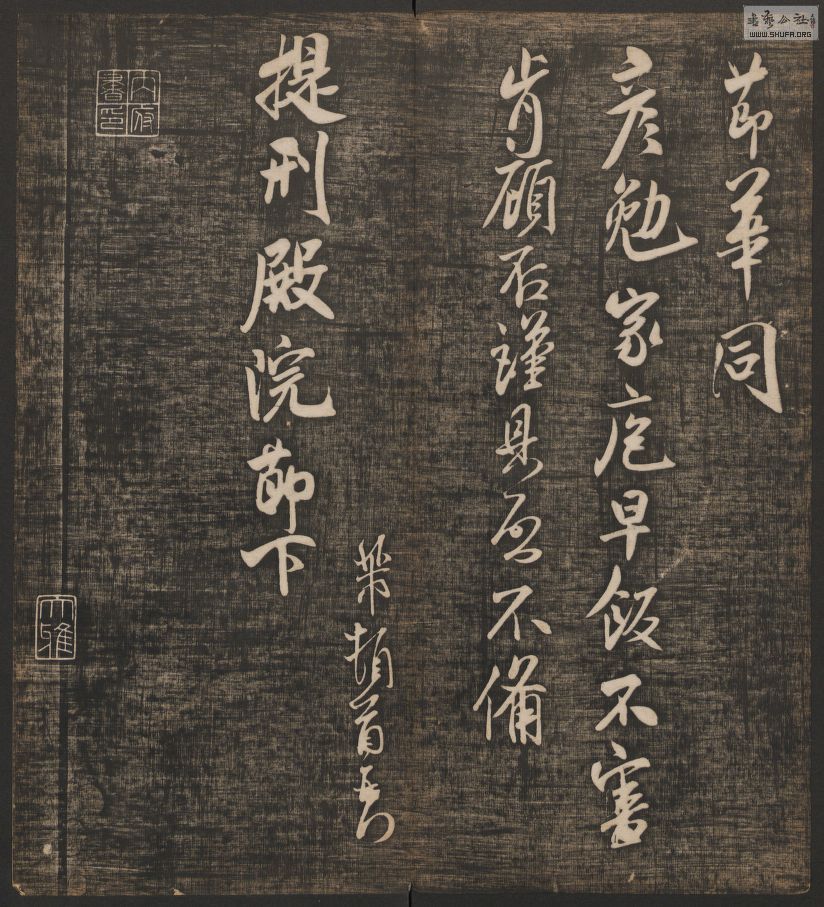 書藝公社
WWW.SHUFA.ORG
節華同
彥勉家庖早飯不審
肯顧否謹具啟不備
頓首
提刑殿院節下
內府書印
大雅